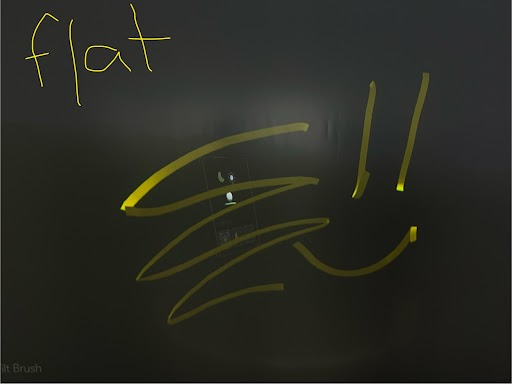 flat
ilt Brush